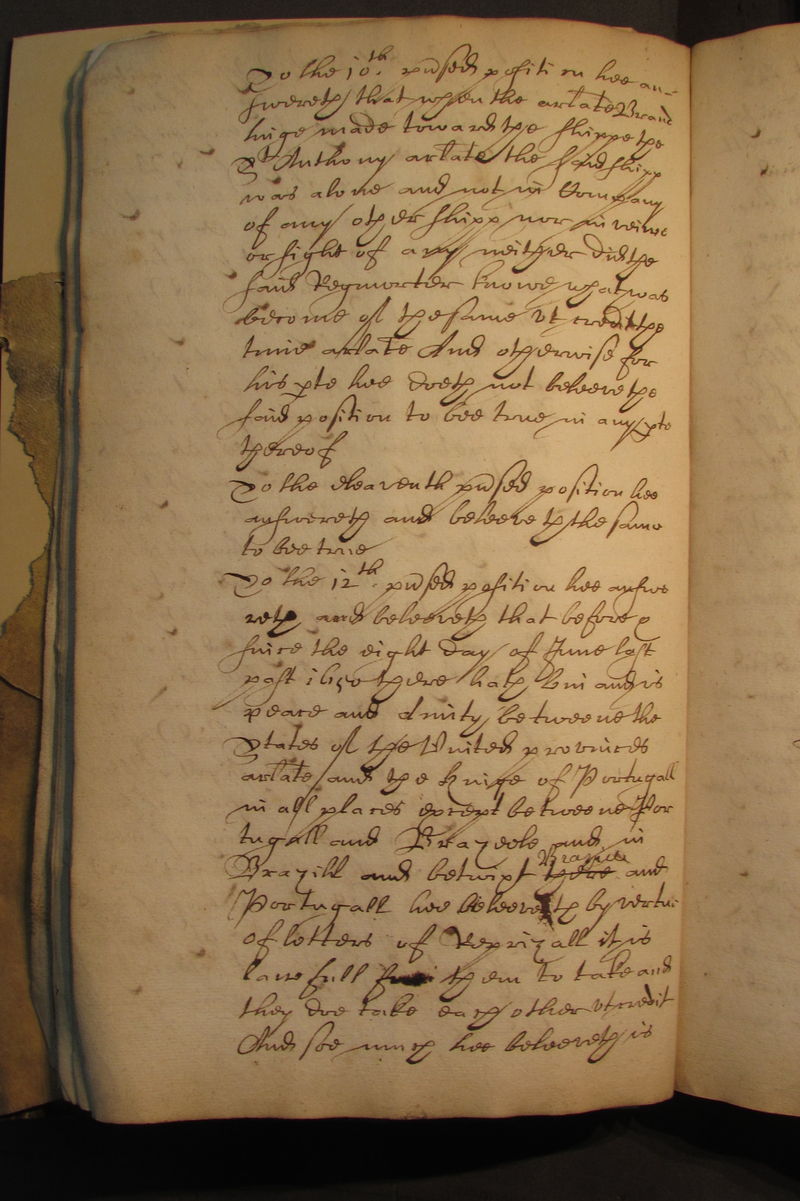 To the 10th. pꝛsed position hee an-
swereth that when the arlate Brand
linge made towards the shippe the
St Anthony arlate the said shipp
was alone and not in Company
of any other shipp nor in veiwe
or sight of any neither did the
said Regmorter knowe what was
become of the same vt credit the
time arlate And otherwise for
his pte hee doeth not beleeve the
said position to bee true in any pte
thereof
To the eleaventh pꝛsed position hee
answereth and beleeveth the same
to bee true
To the 12th. pꝛsed position hee answe
reth and beleeveth that before &
since the eight day of June last
past 1650 there hath bin and is
peace and Amity betweene the
States of the United provinces
arlate and the Kinge of Portugall
in all places except betweene Por
tugall and Brazeele and in
Brazill and betwixt there Brazill and
Portugall hee beleeveth by vertue
of letters of Reprizall it is
lawfull them to take and
they doe take each other vt credit
And soe much hee beleeveth is